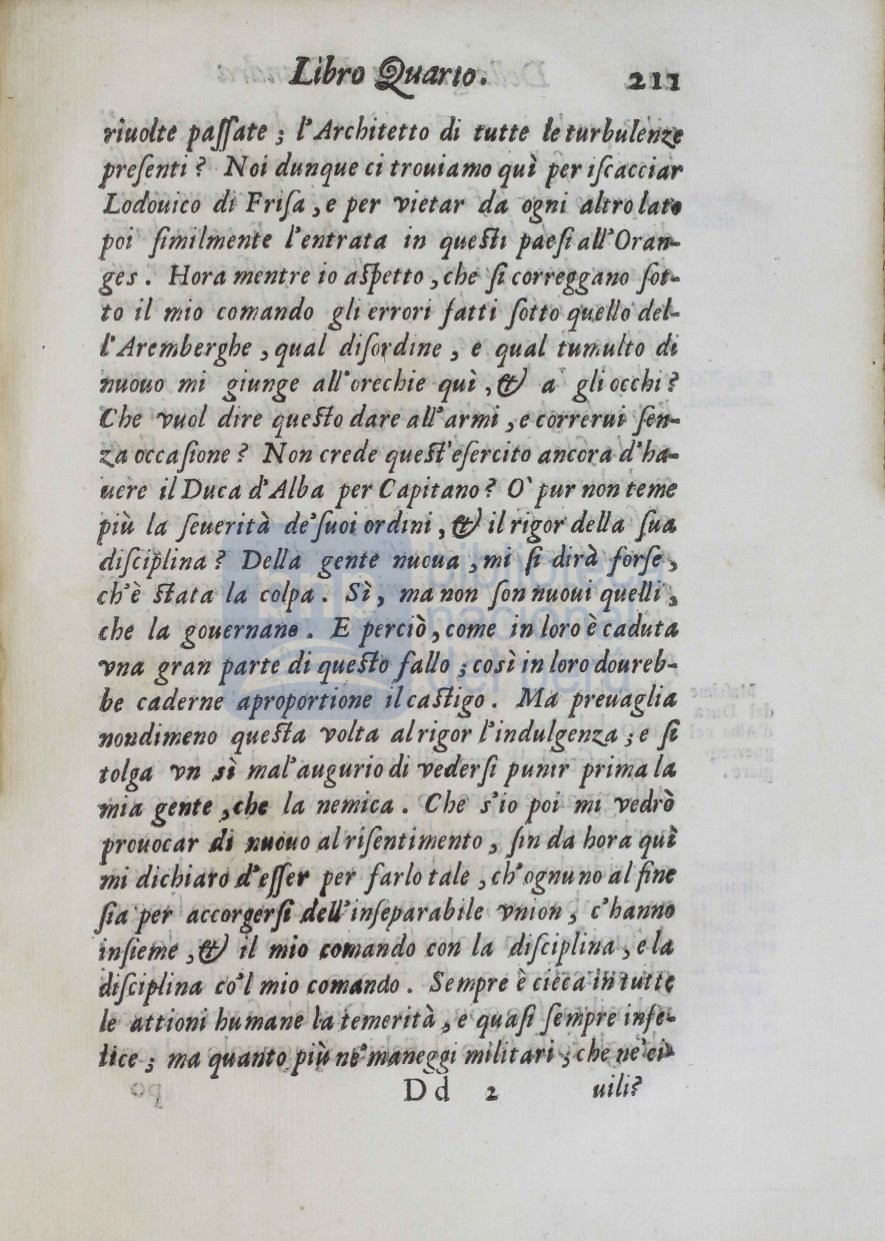 Libro Quarto. 211
riuolte paſſate ; l'Architetto di tutte le turbulenze
preſenti ? Noi dunque ci trouiamo quì per iſcacciar
Lodouico di Friſa , e per vietar da ogni altro lato
poi ſimilmente l'entrata in queſti paeſi all'Oran-
ges . Hora mentre io aſpetto , che ſi correggano ſot-
to il mio comando gli errori fatti ſotto quello del-
l'Aremberghe , qual diſordine , e qual tumulto di
nuouo mi giunge all'orechie quì , & a gli occhi ?
Che vuol dire queſto dare all'armi , e correrui ſen-
za occaſione ? Non crede queſt'eſercito ancora d'ha-
uere il Duca d'Alba per Capitano ? O' pur non teme
più la ſeuerità de'ſuoi ordini , & il rigor della ſua
diſciplina ? Della gente nuoua , mi ſi dirà forſe ,
ch'è ſtata la colpa . Sì , ma non ſon nuoui quelli ,
che la gouernano . E perciò , come in loro è caduta
vna gran parte di queſto fallo ; così in loro doureb-
be caderne a proportione il caſtigo . Ma preuaglia
nondimeno queſta volta al rigor l'indulgenza ; e ſi
tolga vn sì mal'augurio di vederſi punir prima la
mia gente , che la nemica . Che s'io poi mi vedrò
prouocar di nuouo al riſentimento , ſin da hora quì
mi dichiaro d'eſſer per farlo tale , ch'ognuno al fine
ſia per accorgerſi dell'inſeparabile vnion , c'hanno
inſieme , & il mio comando con la diſciplina , e la
diſciplina co'l mio comando . Sempre è cieca in tutte
le attioni humane la temerità , e quaſi ſempre infe-
lice ; ma quanto più ne'maneggi militari ; che ne'ci-
D d 2 uili?